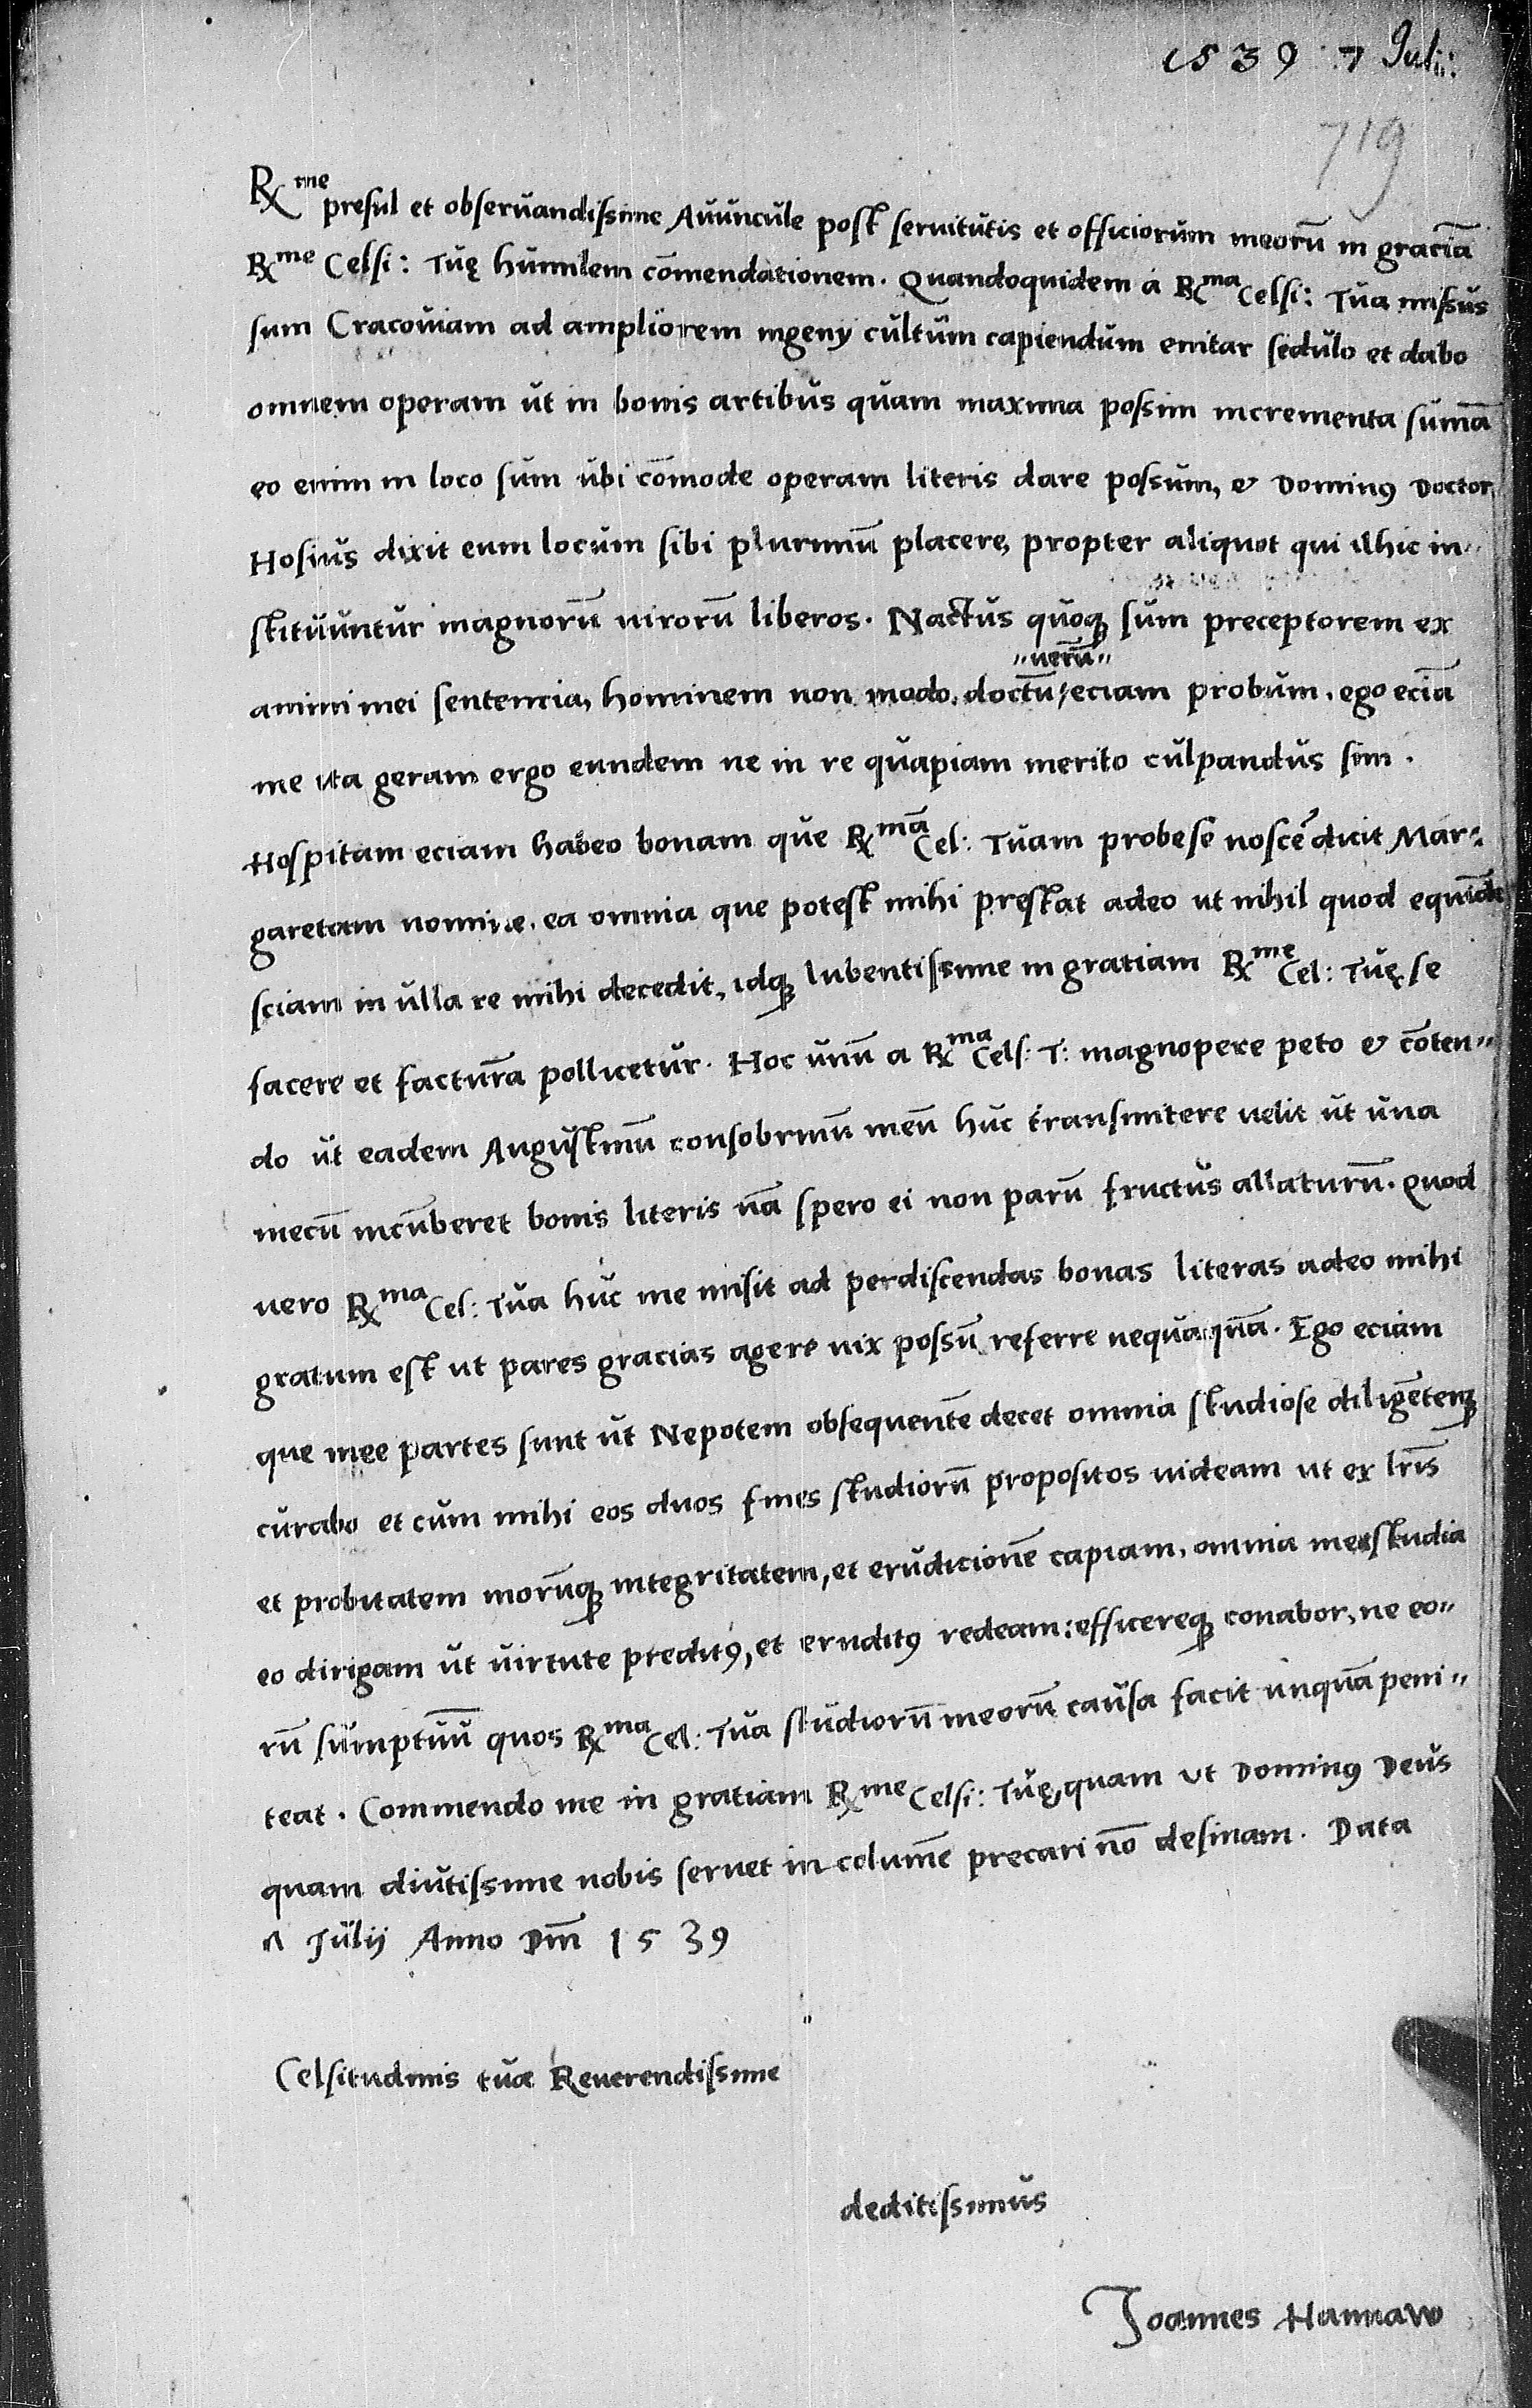 1539 7 Julii:
719
Rx me presul et observandissime Avuncule post servitutis et officiorum meorũ in graciã
Rx me Celsi: Tuę humilem cõmendationem. Quandoquidem á Rx ma Celsi: Tua missus
sum Cracoviam ad ampliorem ingenij cultum capiendum enitar sedulo et dabo
omnem operam ut in bonis artibus quam maxima possim incrementa sumã
eo enim in loco sum ubi cõmode operam literis dare possum, & Dominus Doctor
Hosius dixit eum locum sibi plurimũ placere, propter aliquot qui illhic in„
stituuntur magnorũ virorũ liberos. Nactus quoque sum preceptorem ex
„verũ„
animi mei sentencia, hominem non modo doctũ, eciam probum. ego eciã
me ita geram ergo eundem ne in re quapiam merito culpandus sim.
Hospitam eciam habeo bonam que Rx mã Cel: Tuam probe se noscẽ dicit Mar„
garetam nomine, ea omnia que potest mihi prestat adeo ut nihil quod equidẽ
sciam in ulla re mihi decedit, idque lubentissime in gratiam Rx me Cel: Tuę se
facere et facturã pollicetur. Hoc unũ a Rx ma Cels: T: magnopere peto & cõten„
do ut eadem Augustinũ consobrinũ meũ huc transmitere velit ut una
mecũ incũberet bonis literis nã spero ei non parũ fructus allaturũ. Quod
vero Rx ma Cel: Tua huc me misit ad perdiscendas bonas literas adeo mihi
gratum est ut pares gracias agere vix possũ referre nequaquã. Ego eciam
que mee partes sunt ut Nepotem obsequentẽ decet omnia studiose diligẽterque
curabo et cum mihi eos duos fines studiorũ propositos videam ut ex lris
et probitatem morũque integritatem, et erudicionẽ capiam, omnia mea studia
eo dirigam ut virtute preditus, et eruditus redeam: efficereque conabor, ne eo„
rũ sumptuũ quos Rx ma Cel: Tua studiorũ meorũ causa facit unquã peni„
teat. Commendo me in gratiam Rx me Celsi: Tuę, quam ut Dominus Deus
quam diutissime nobis servet incolumẽ precari nõ desinam. Data
7 Julij Anno Dm̃ 1539
Celsitudinis tuæ Reverendissime
deditissimus
Joannes Hannaw